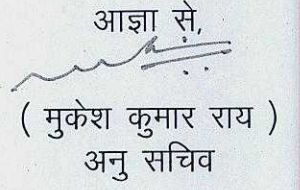 आज्ञा से,
( मुकेश कुमार राय )
अनु सचिव